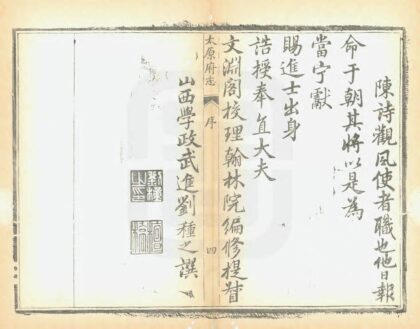 陳詩觀風使者職也他日報
命于朝其將以是為
當宁獻
賜進士出身
誥授奉直大夫
文淵閣校理翰林院編修提督
太原府志
序
四
山西學政武進劉種之撰